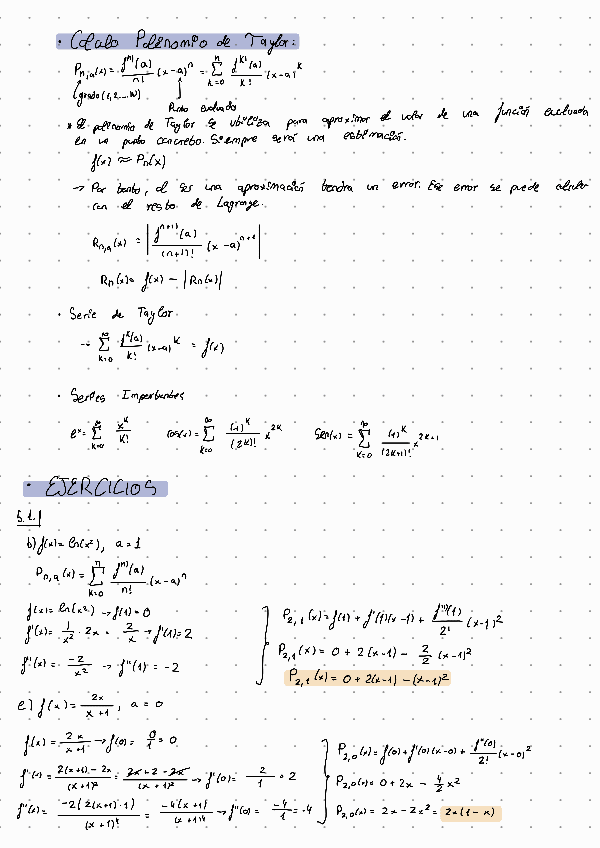 · Cálculo Polinomio de Taylor:
P_{n,a}(x) = \frac{f^{n)}(a)}{n!} (x-a)^n = \sum_{k=0}^{n} \frac{f^{k)}(a)}{k!} (x-a)^k
grado (1,2,...,N)
Punto evaluado
* El polinomio de Taylor se utiliza para aproximar el valor de una función evaluada
en un punto concreto. Siempre será una estimación.
f(x) ≈ P_n(x)
→ Por tanto, al ser una aproximación tendra un error. Ese error se puede calcular
con el resto de Lagrange.
R_{n,a}(x) = \left| \frac{f^{n+1)}(a)}{(n+1)!} (x-a)^{n+1} \right|
R_n(x) = f(x) - |R_n(x)|
· Serie de Taylor
→ \sum_{k=0}^{∞} \frac{f^k(a)}{k!} (x-a)^k = f(x)
· Series Importantes
e^x = \sum_{k=0}^{∞} \frac{x^k}{k!} cos(x) = \sum_{k=0}^{∞} \frac{(-1)^k}{(2k)!} x^{2k} Sen(x) = \sum_{k=0}^{∞} \frac{(-1)^k}{(2k+1)!} x^{2k+1}
· EJERCICIOS
5.1.
b) f(x) = ln(x^2), a = 1
P_{n,a}(x) = \sum_{k=0}^{n} \frac{f^{n)}(a)}{n!} (x-a)^n
f(x) = ln(x^2) → f(1) = 0
f'(x) = \frac{1}{x^2} · 2x = \frac{2}{x} → f'(1) = 2
f''(x) = \frac{-2}{x^2} → f''(1) = -2
P_{2,1}(x) = f(1) + f'(1)(x-1) + \frac{f''(1)}{2!} (x-1)^2
P_{2,1}(x) = 0 + 2(x-1) - \frac{2}{2} (x-1)^2
P_{2,1}(x) = 0 + 2(x-1) - (x-1)^2
e) f(x) = \frac{2x}{x+1}, a = 0
f(x) = \frac{2x}{x+1} → f(0) = \frac{0}{1} = 0
f'(x) = \frac{2(x+1) - 2x}{(x+1)^2} = \frac{2x+2-2x}{(x+1)^2} → f'(0) = \frac{2}{1} = 2
f''(x) = \frac{-2(2(x+1)·1)}{(x+1)^4} = \frac{-4(x+1)}{(x+1)^4} → f''(0) = \frac{-4}{1} = -4
P_{2,0}(x) = f(0) + f'(0)(x-0) + \frac{f''(0)}{2!} (x-0)^2
P_{2,0}(x) = 0 + 2x - \frac{4}{2} x^2
P_{2,0}(x) = 2x - 2x^2 = 2x(1-x)